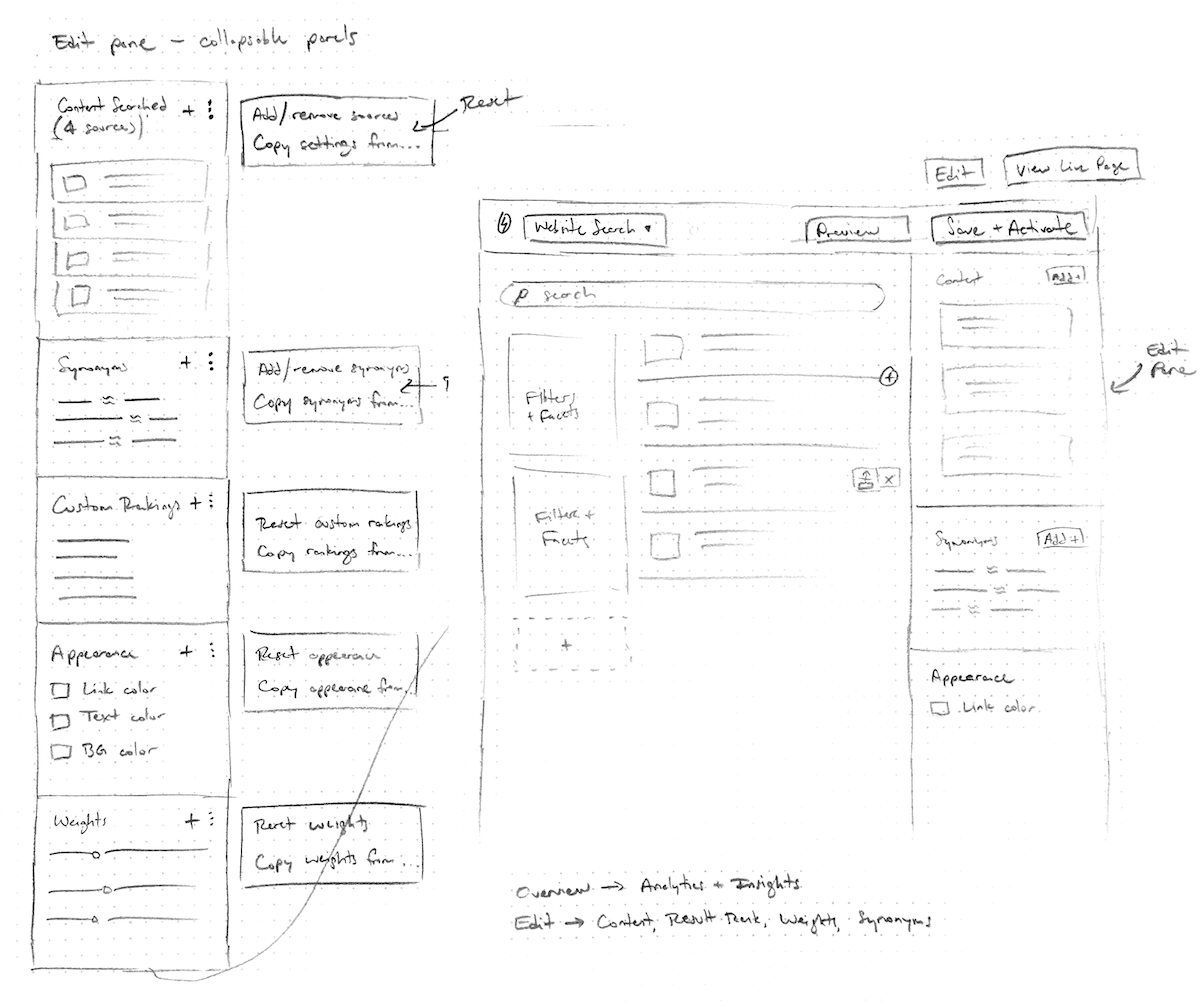 Edit pane – collapsable panels
Content Searched + ⋮
(4 sources)
Add/remove sources
Copy settings from...
Reset
Synonyms + ⋮
≈
≈
≈
Add/remove synonyms
Copy synonyms from...
Custom Rankings + ⋮
Reset custom rankings
Copy rankings from...
Appearance + ⋮
Link color
Text color
BG color
Reset appearance
Copy appearance from...
Weights + ⋮
Reset weights
Copy weights from...
Edit
View Live Page
Website Search
Preview
Save + Activate
search
Filters
+ Facets
Filters +
Facets
+
+
x
Content
Add +
Synonyms
Add +
≈
≈
≈
Appearance
Link color
Edit
Pane
Overview → Analytics + Insights
Edit → Content, Result Rank, Weights, Synonyms